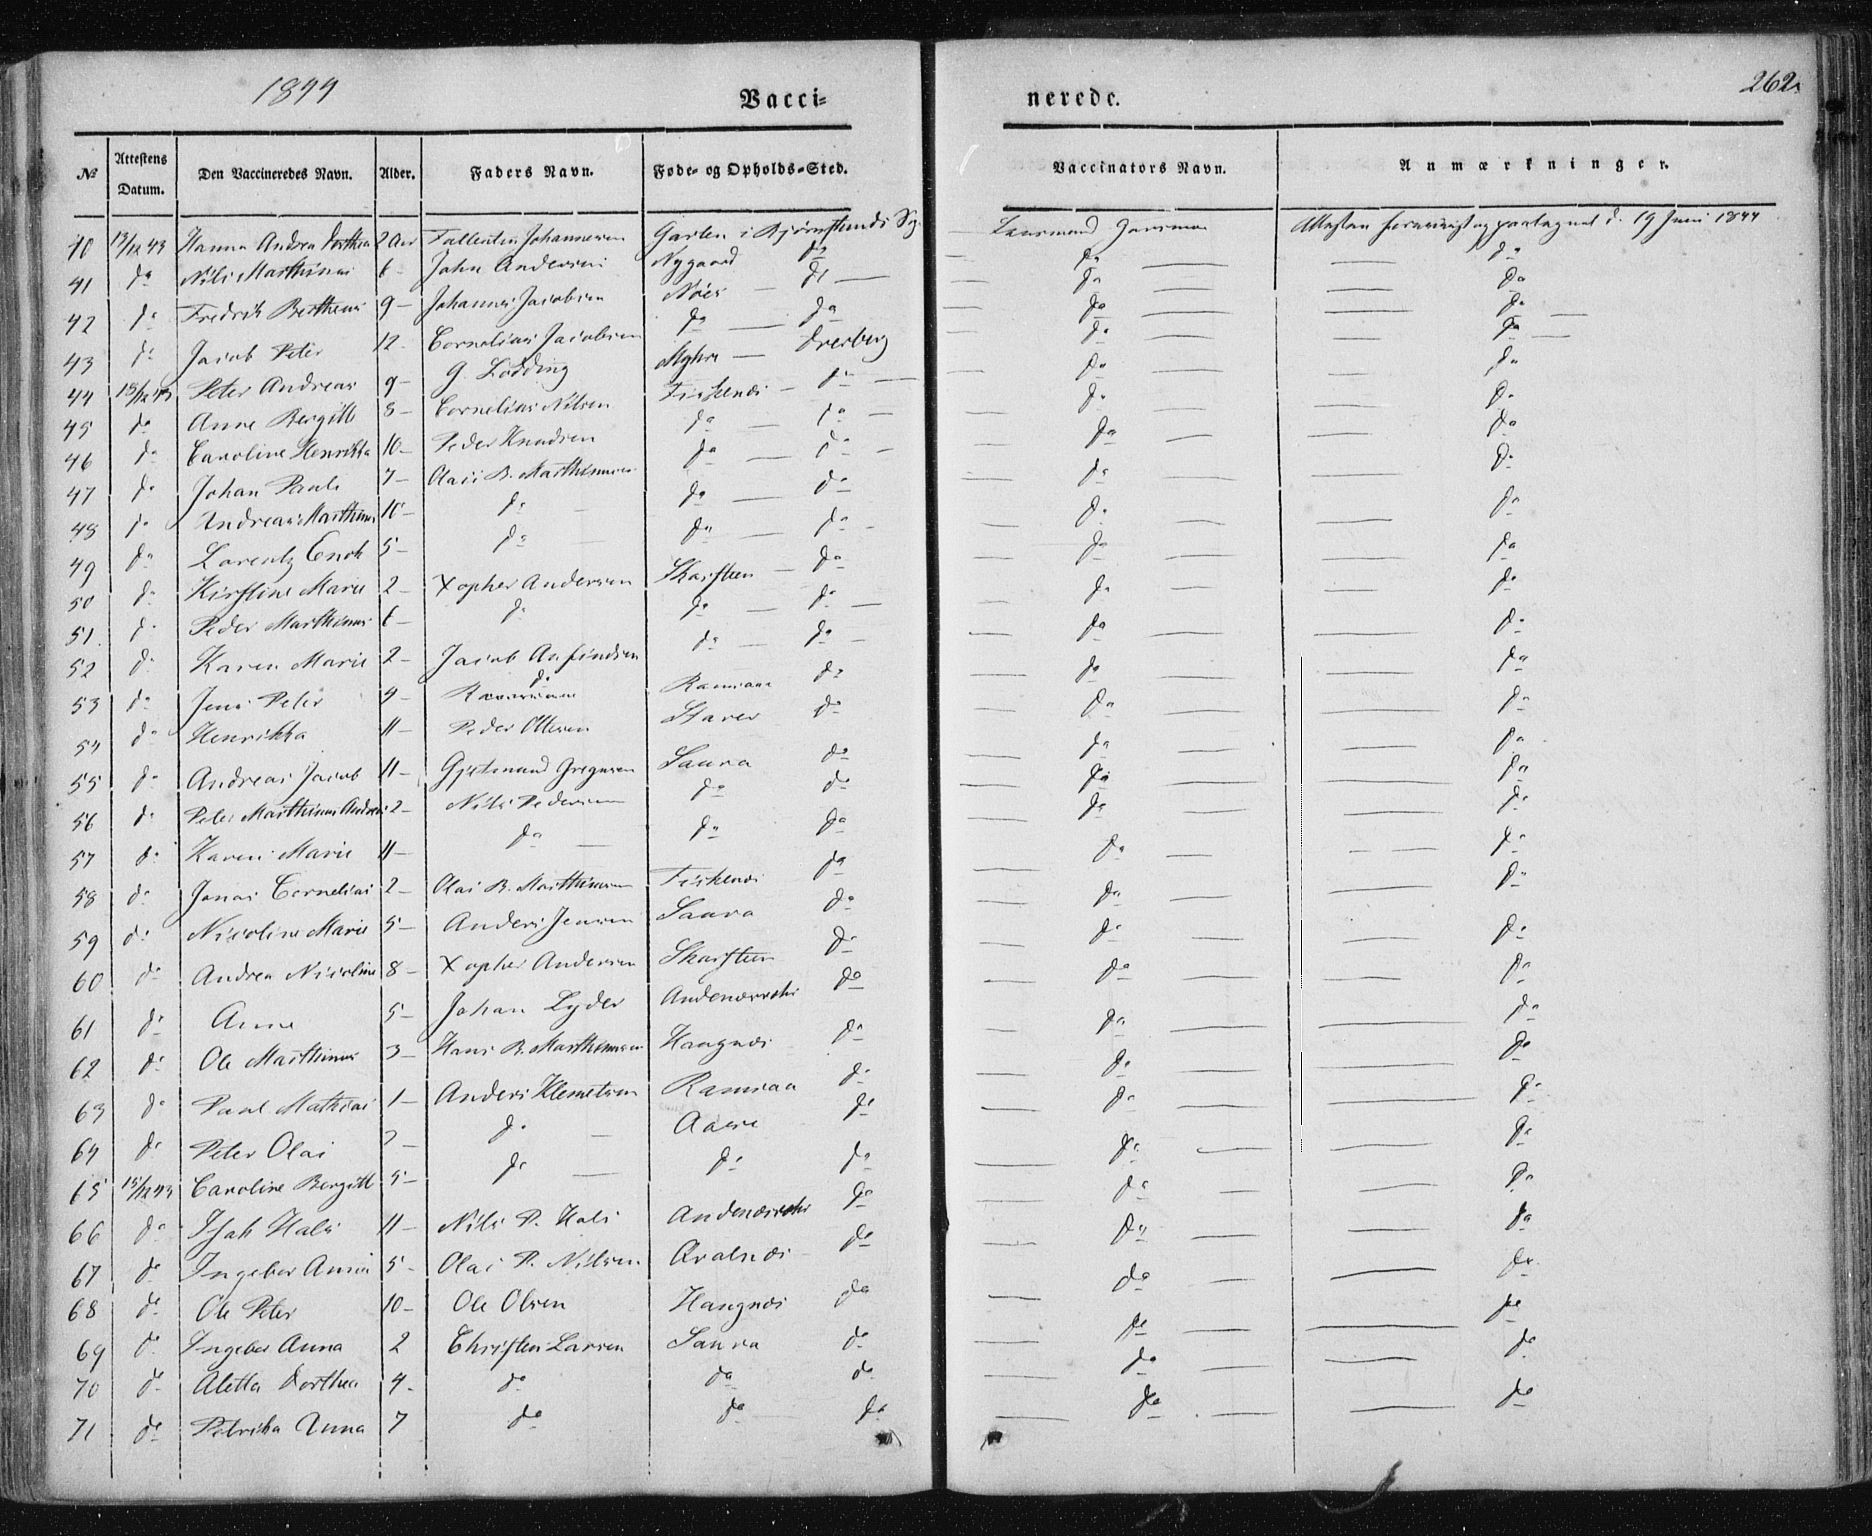 1844 Vacci= nerede. 262.
No Attestens Datum. Den Vaccineredes Navn. Alder. Faders Navn. Føde- og Opholds-Sted. Vaccinators Navn. Anmærkninger.
40 13/12 43 Hanna Andrea Dorthea 2 Aar Johannesen i Attesten 19 Juni 1844
41 do Nils Marthinus 6 - John Andersen Nygaard do do do
42 do Fredrik Bertheus 9 - Johannes Jacobsen Nöis do do do
43 do Jacob Peter 12 - Cornelius Jacobsen do do do do
44 15/12 43 Peter Andreas 9 - G. Lodding Myhre Dverberg do do
45 do Anne Bergitte 3 - Cornelius Nilsen Fiskenæs do do do
46 do Caroline Henrikka 10 - Peder Knudsen do do do do
47 do Johan Paul 7 - Olai B. Marthinusen do do do do
48 do Andreas Marthinus 10 - do do do do do
49 do Lorentz Enok 5 - do do do do do
50 do Kirstine Marie 2 - Xopher Andersen Skarsteen do do do
51. do Peder Marthinus 6 - do do do do do
52 do Karen Marie 2 - Jacob Anfindsen do do do do
53 do Jens Peter 9 - do Ramsaa do do do
54 do Henrikka 11 - Peder Ottesen Staver do do do
55 do Andreas Jacob 11 - Gjertmund Gregusen Saura do do do
56 do Peter Marthinus Andreas 2 - Nils Pedersen do do do do
57 do Karen Marie 11 - do do do do do
58 do Jonas Cornelius 2 - Olai B. Marthinusen Fiskenæs do do do
59 do Nicoline Marie 5 - Anders Jensen Saura do do do
60 do Andrea Nicoline 8 - Xopher Andersen Skarsteen do do do
61 do Anne 5 - Johan Lyder do do do
62 do Ole Marthinus 3 - Hans B. Marthinusen Haugnæs do do do
63 do Paul Mathias 1 - Anders Klemetsen Ramsaa do do do
64 do Peter Olai do Aase do do do
65 15/12 43 Caroline Bergitte 5 - do do do do do
66 do Isak Hals 11 - Nils P. Hals do do do
67 do Ingebor Anna 5 - Olai P. Nilsen Qvalnæs do do do
68 do Ole Peter 10 - Ole Olsen Haugnæs do do do
69 do Ingebor Anna 2 Christen Larsen Saura do do do
70 do Aletta Dorthea 4 - do do do do do
71 do Petrikka Anna 7 do do do do do